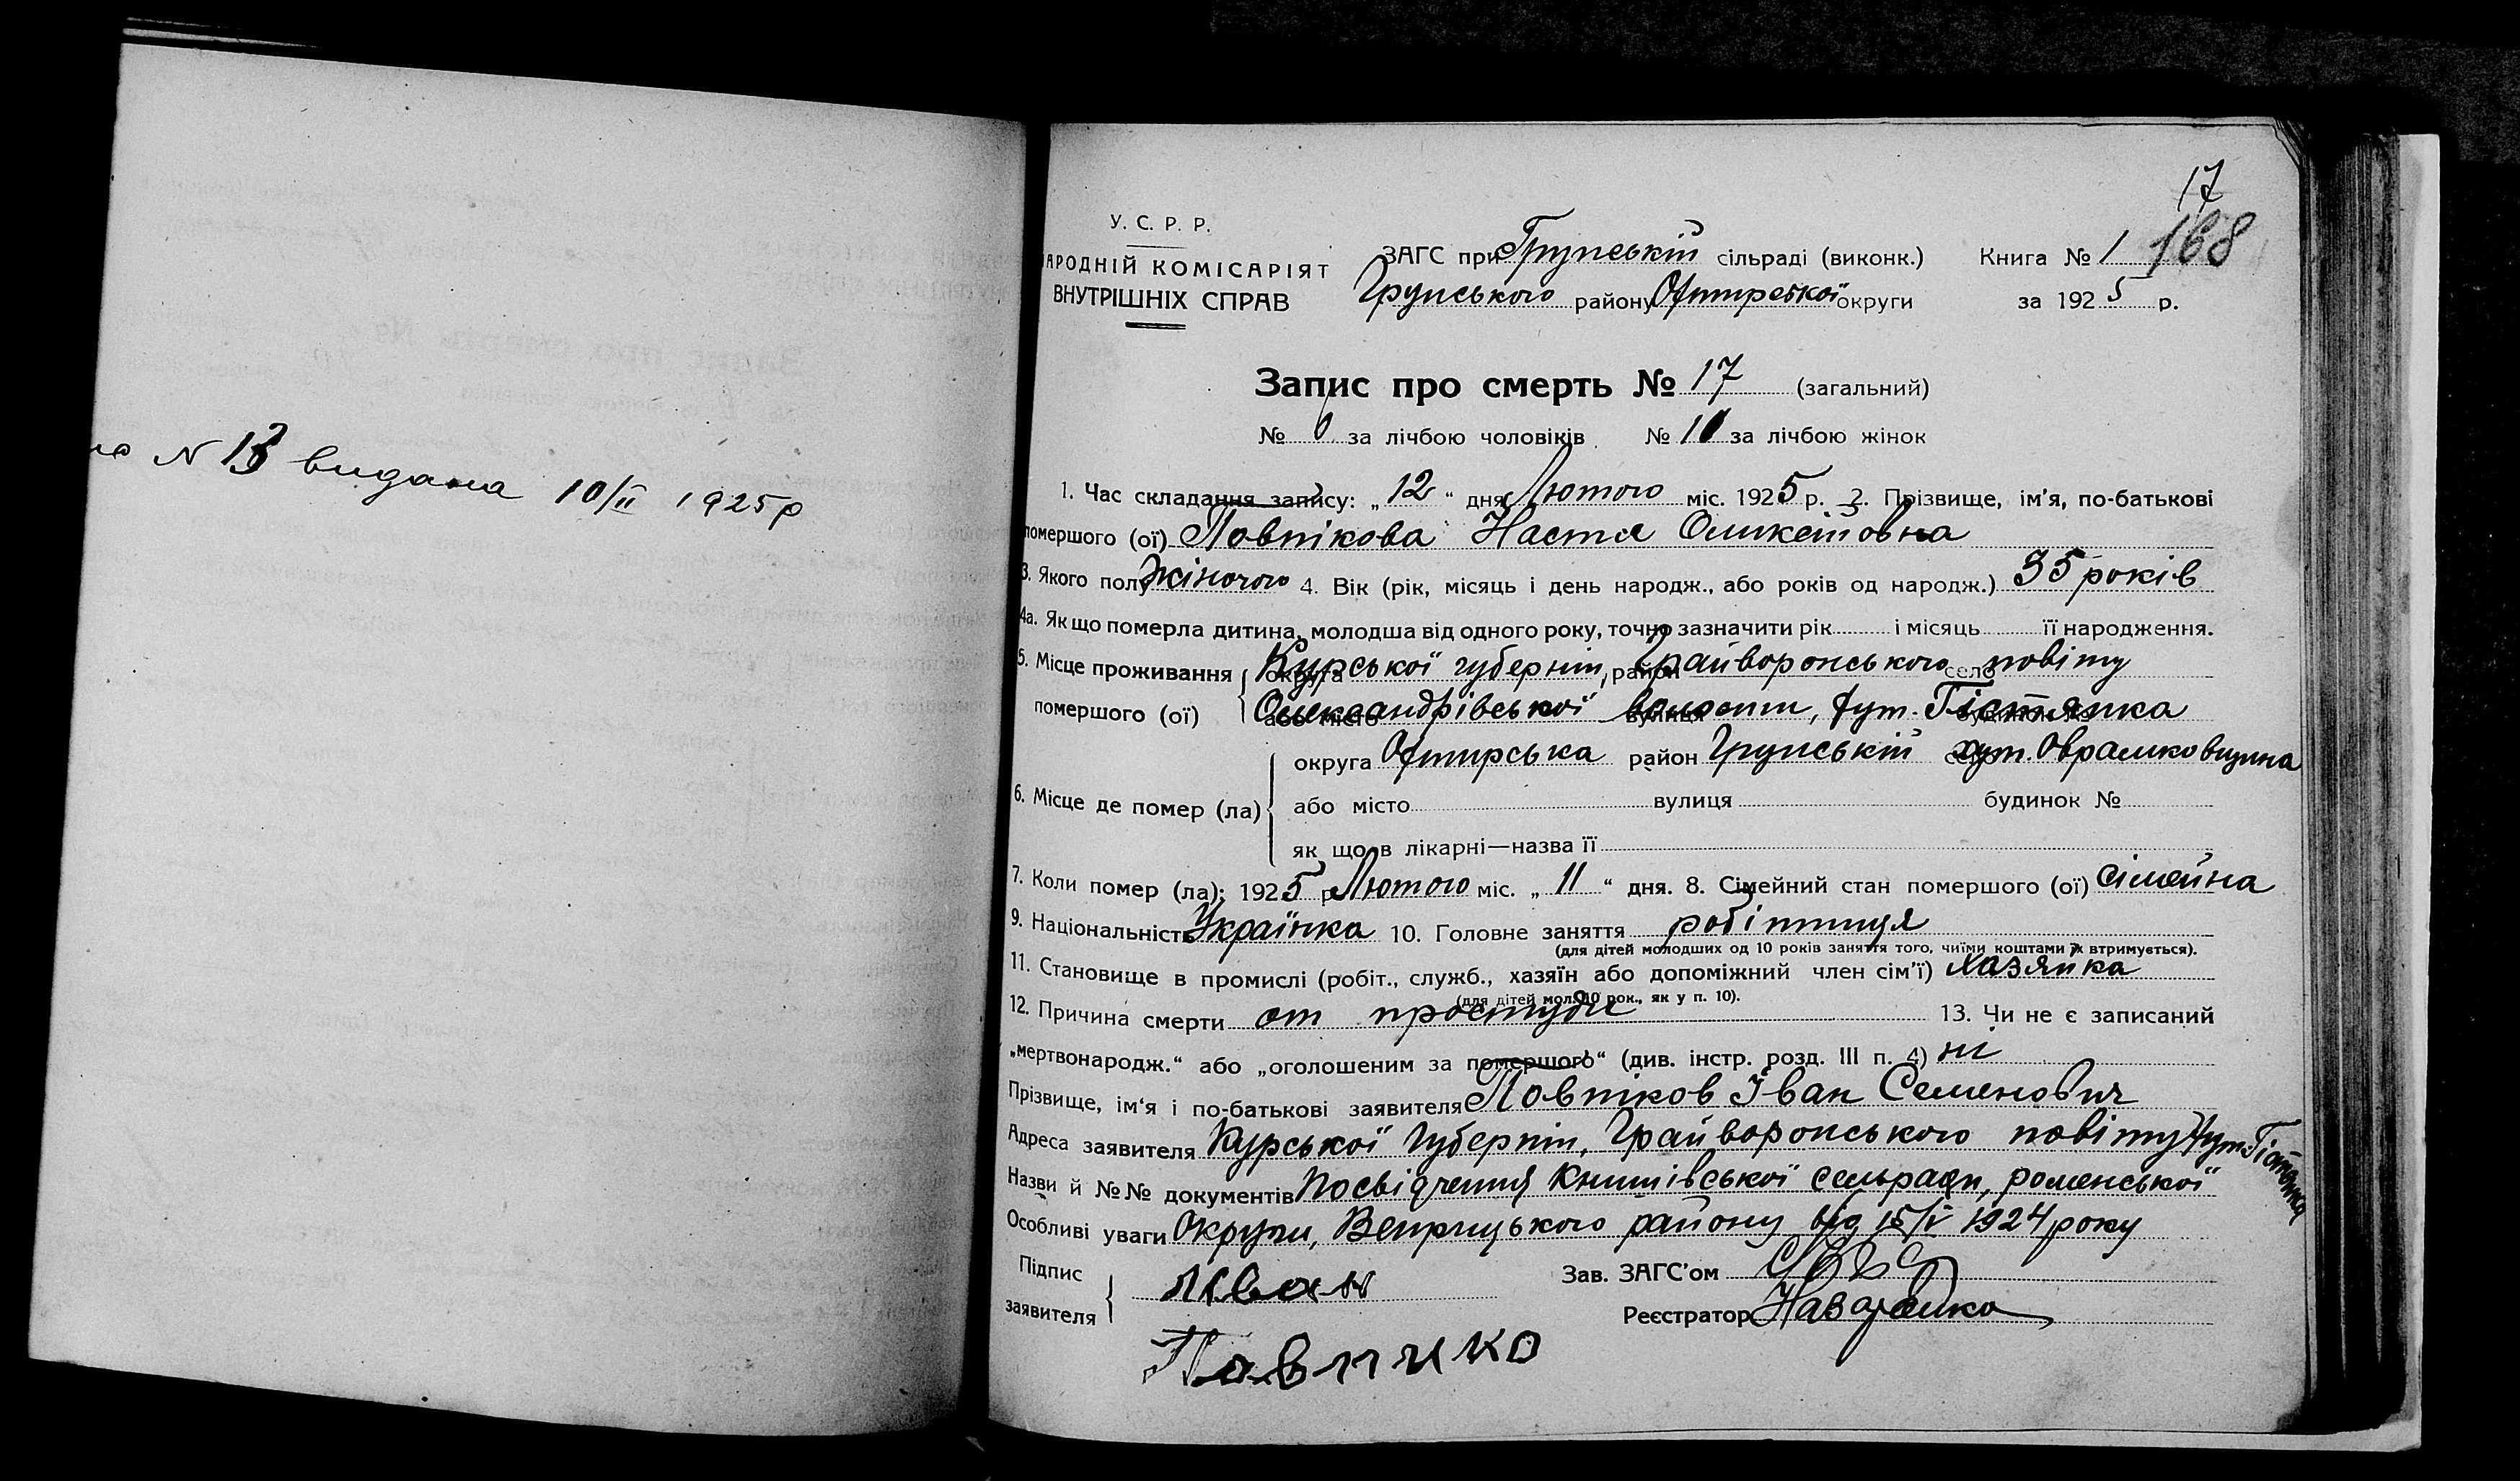 N 13 видана 10/II 1925 р
17
168
У. С. Р. Р.
НАРОДНІЙ КОМІСАРІЯТ
ВНУТРІШНІХ СПРАВ
ЗАГС при Грунській сільраді (виконк.) Книга № 1
Грунського району Охтирської округи за 1925 р.
Запис про смерть № 17 (загальний)
№ за лічбою чоловіків № 10 за лічбою жінок
1. Час складання запису: „12“ дня Лютого міс. 1925 р. 2. Прізвище, ім'я, по-батькові
помершого (ої) Повтікова Настя
3. Якого полу Жіночого 4. Вік (рік, місяць і день народж., або років од народж.) 35 років
4а. Як що померла дитина, молодша від одного року, точно зазначити рік і місяць її народження.
5. Місце проживання округа Курської губернїи, район Грайворонського село повіту
помершого (ої) або місто Олександрівської волости, хут. Гістянка
округа Охтирська район Грунській хут. Оврамковщина
6. Місце де помер (ла) або місто вулиця будинок №
як що в лікарні—назва її
7. Коли помер (ла): 1925 р. Лютого міс. „11“ дня. 8. Сімейний стан помершого (ої) сімейна
9. Національність Українка 10. Головне заняття робітниця
(для дітей молодших од 10 років заняття того, чиїми коштами їх втримується).
11. Становище в промислі (робіт., служб., хазяїн або допоміжний член сім'ї) хазяйка
(для дітей мол. 10 рок., як у п. 10).
12. Причина смерти от простуди 13. Чи не є записаний
„мертвонародж.“ або „оголошеним за помершого“ (див. інстр. розд. III п. 4) ні
Прізвище, ім'я і по-батькові заявителя Повтіков Іван Семенович
Адреса заявителя Курської Губернїи, Грайворонського повіту хут. Гістянка
Назви й №№ документів Посвідчення Книшівської сельради, роменської
Особливі уваги Округи, Веприцького району від 15/V 1924 року
Підпис
заявителя Иван
Зав. ЗАГС'ом
Реєстратор Назаренко